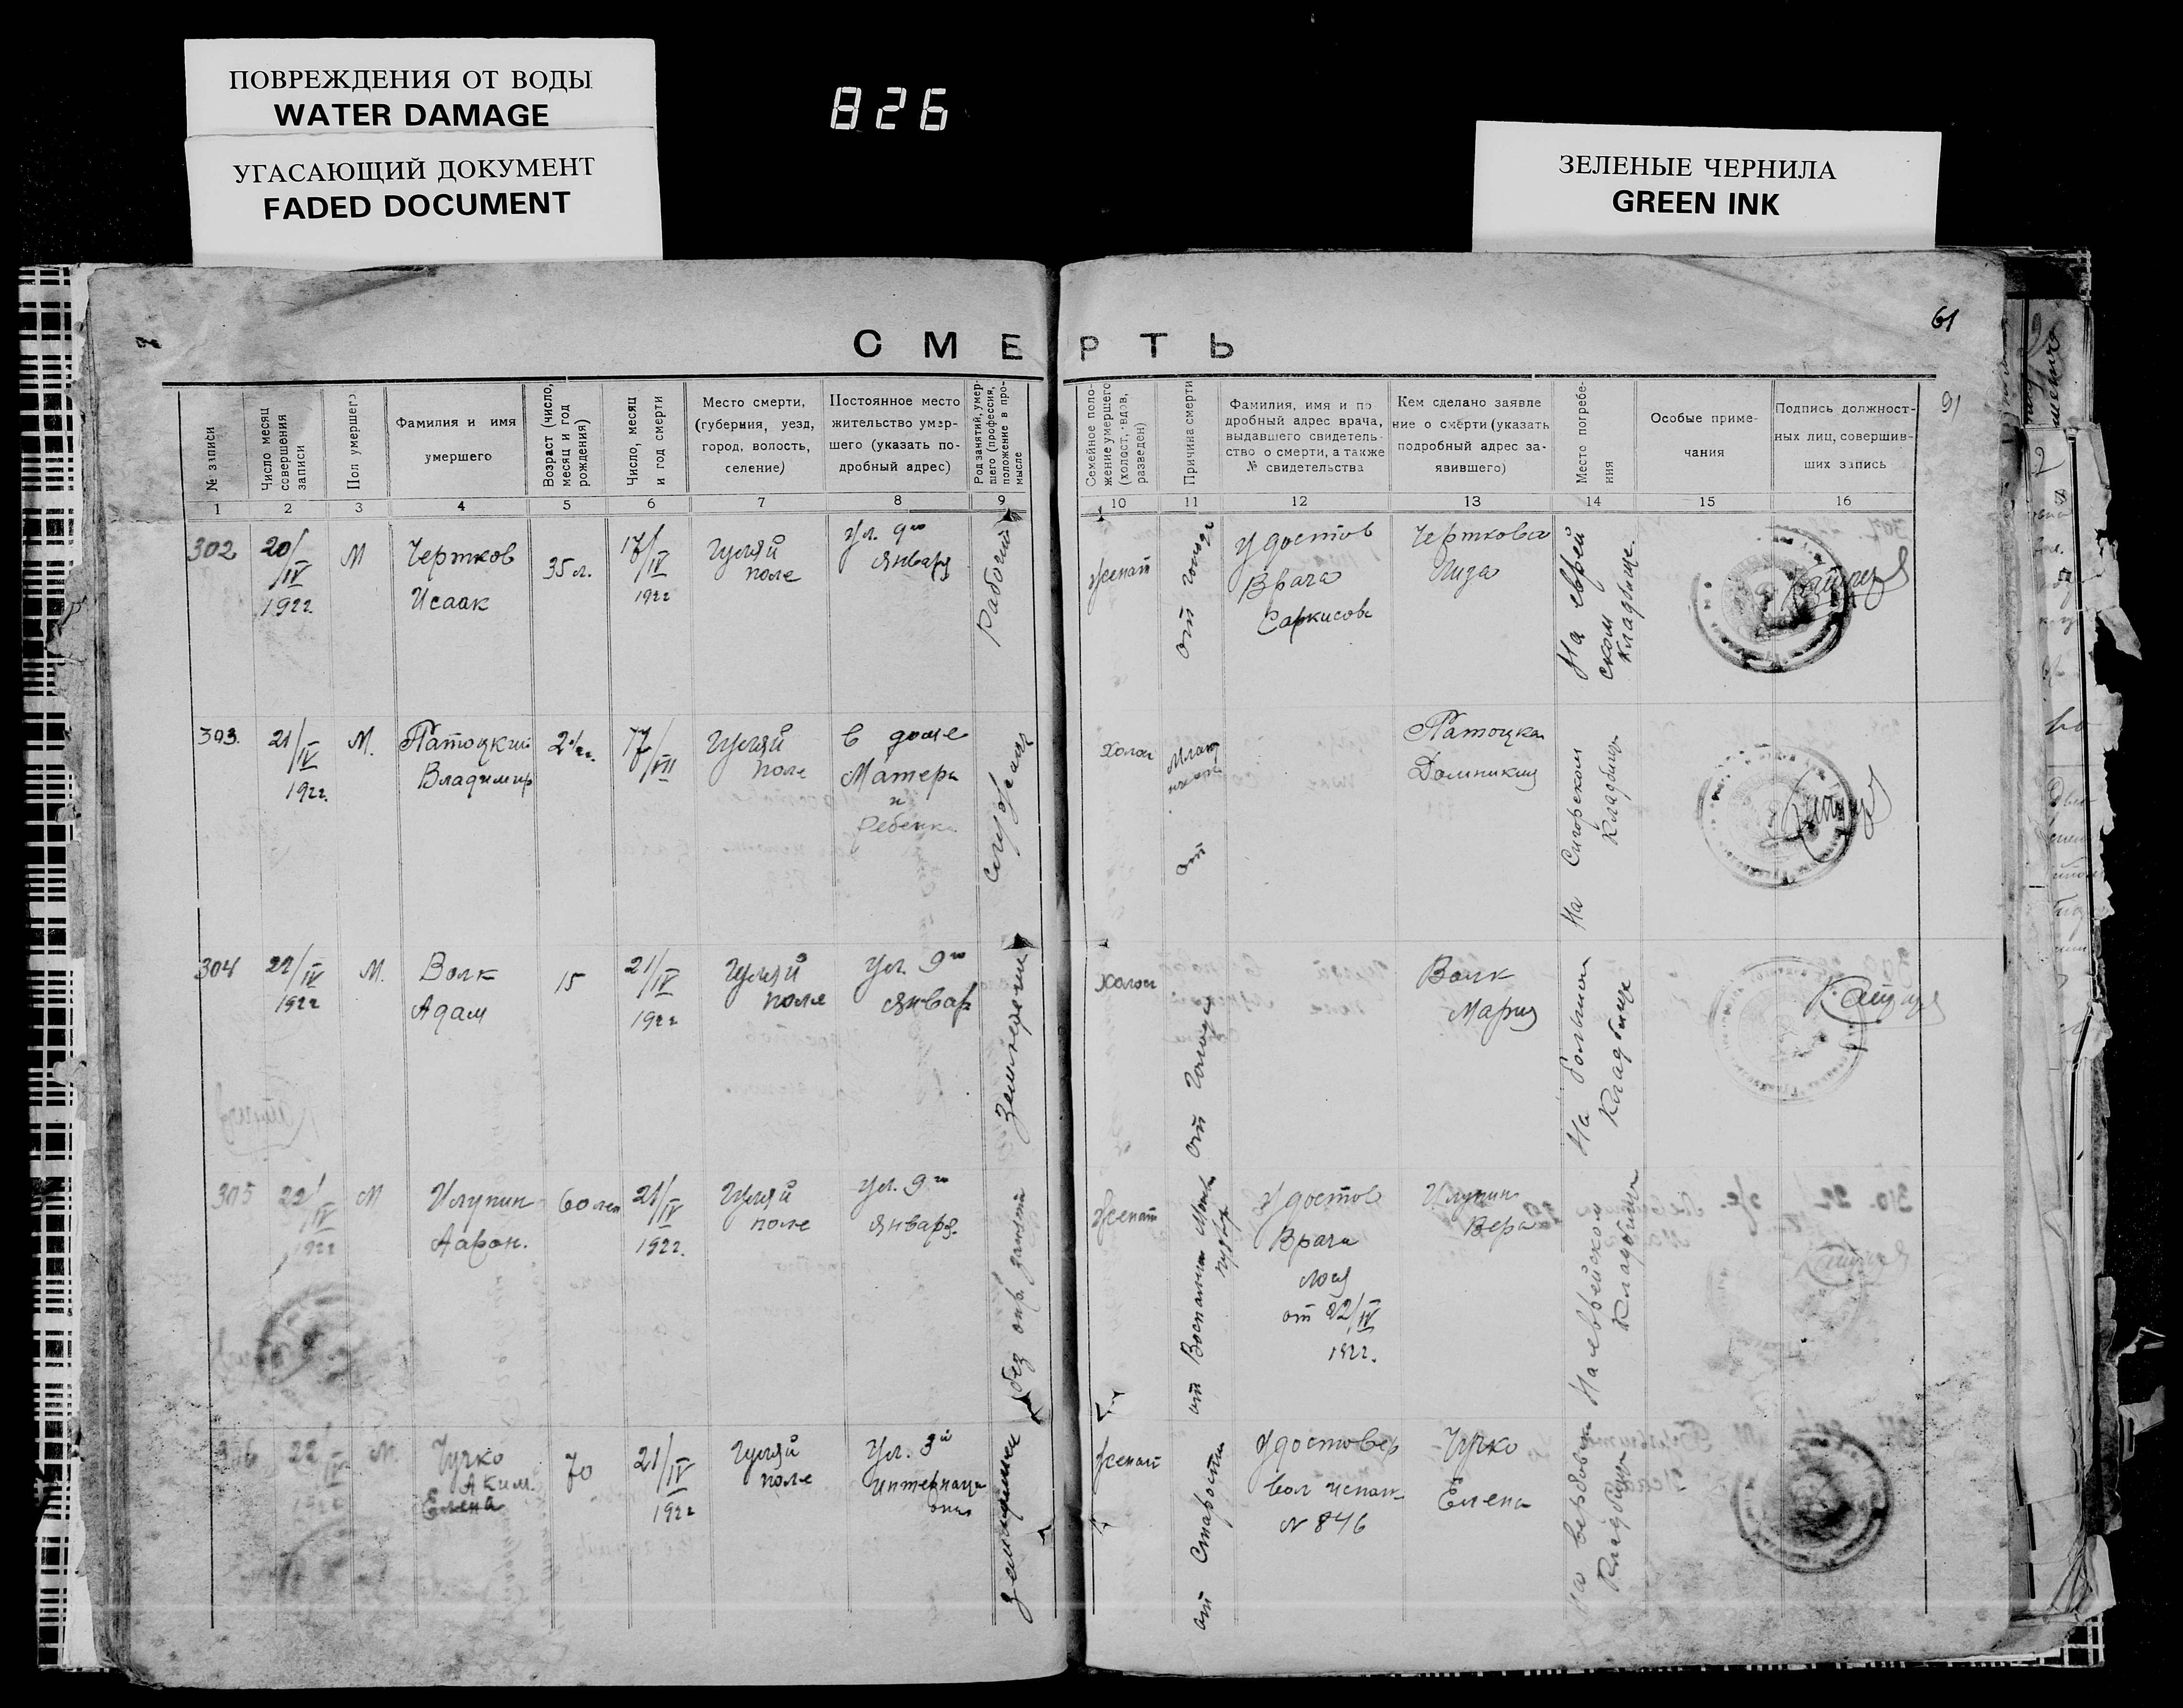 ПОВРЕЖДЕНИЯ ОТ ВОДЫ
WATER DAMAGE
УГАСАЮЩИЙ ДОКУМЕНТ
FADED DOCUMENT
826
ЗЕЛЕНЫЕ ЧЕРНИЛА
GREEN INK
61
91
СМЕРТЬ
№ записи
Число месяц
совершения
записи
Пол умершего
Фамилия и имя
умершего
Возраст (число,
месяц и год
рождения)
Число, месяц
и год смерти
Место смерти,
(губерния, уезд,
город, волость,
селение)
Постоянное место
жительство умер-
шего (указать по-
дробный адрес)
Род занятий, умер-
шего (профессия,
положение в про-
мысле
Семейное поло-
жение умершего
(холост, вдов,
разведен)
Причина смерти
Фамилия, имя и по
дробный адрес врача,
выдавшего свидетель-
ство о смерти, а также
№ свидетельства
Кем сделано заявле
ние о смерти (указать
подробный адрес за-
явившего)
Место погребе-
ния
Особые приме-
чания
Подпись должност-
ных лиц, совершив-
ших запись
1 2 3 4 5 6 7 8 9 10 11 12 13 14 15 16
302
20/IV
1922
М
Чертков
Исаак
35 л.
17/IV
1922
Гуляй
поле
Ул. 9го
Января
Рабочий
женат
от голода
Удостов
Врача
Саркисова
Черткова
Лиза
На еврей
ском
кладбище.
303.
21/IV
1922.
М.
Патоцкий
Владимир
17/VII
Гуляй
поле
в доме
Матери
и
Ребенка
холост
от
Патоцкая
На
Кладбище
304
22/IV
1922
М.
Волк
Адам
15
21/IV
1922
Гуляй
поле
Ул. 9го
Январ
Земледелец
холост
от голода
Волк
Мария
На большом
Кладбище
305
22/IV
1922
М
Аарон.
60 лет
21/IV
1922.
Гуляй
поле
Ул. 9го
Января.
без опр. занятий
женат
от Воспаления
Удостов
Врача
от 22/IV
1922.
Вера
На еврейском
Кладбище
306
22/IV
1922
М.
Гучко
Аким.
Елена
70
21/IV
1922
Гуляй
поле
Ул. 3й
Интернаци
онал
женат
от Старости
Удостовер
вол испол
№ 846
Гучко
Елена
Кладбище